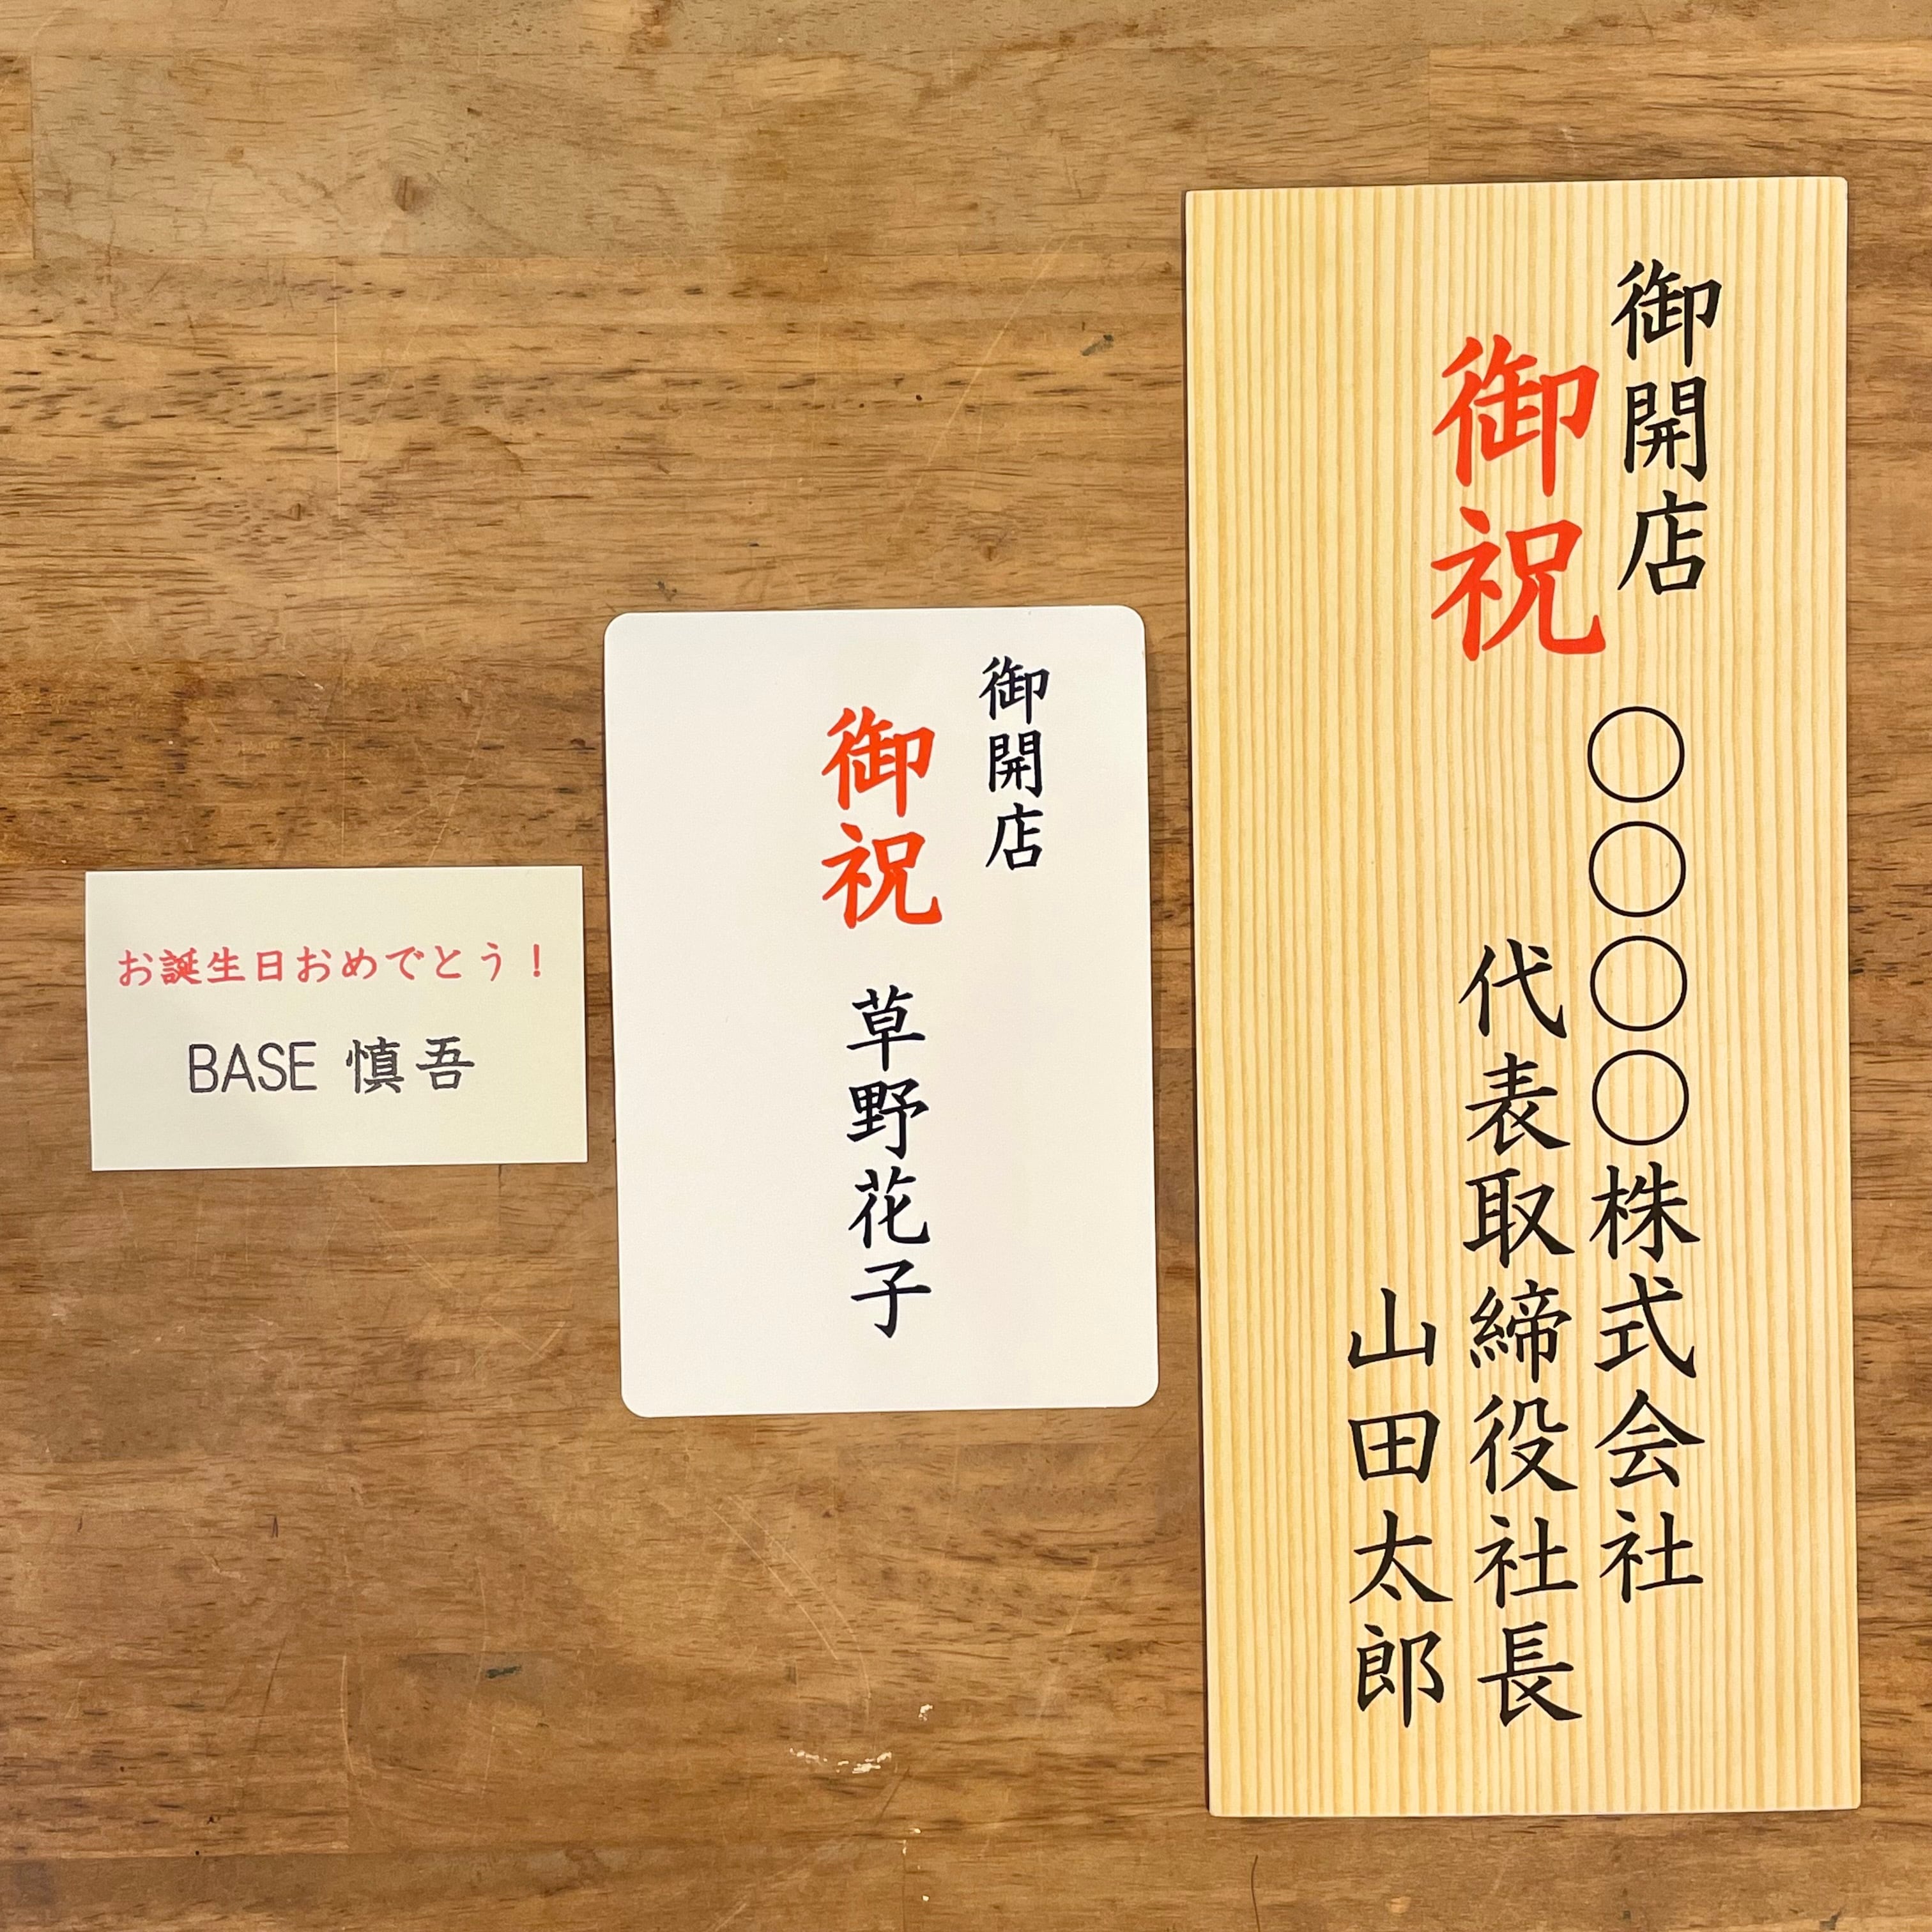 お誕生日おめでとう！
BASE 慎吾
御開店
御祝
草野花子
御開店
御祝
〇〇〇〇株式会社
代表取締役社長
山田太郎